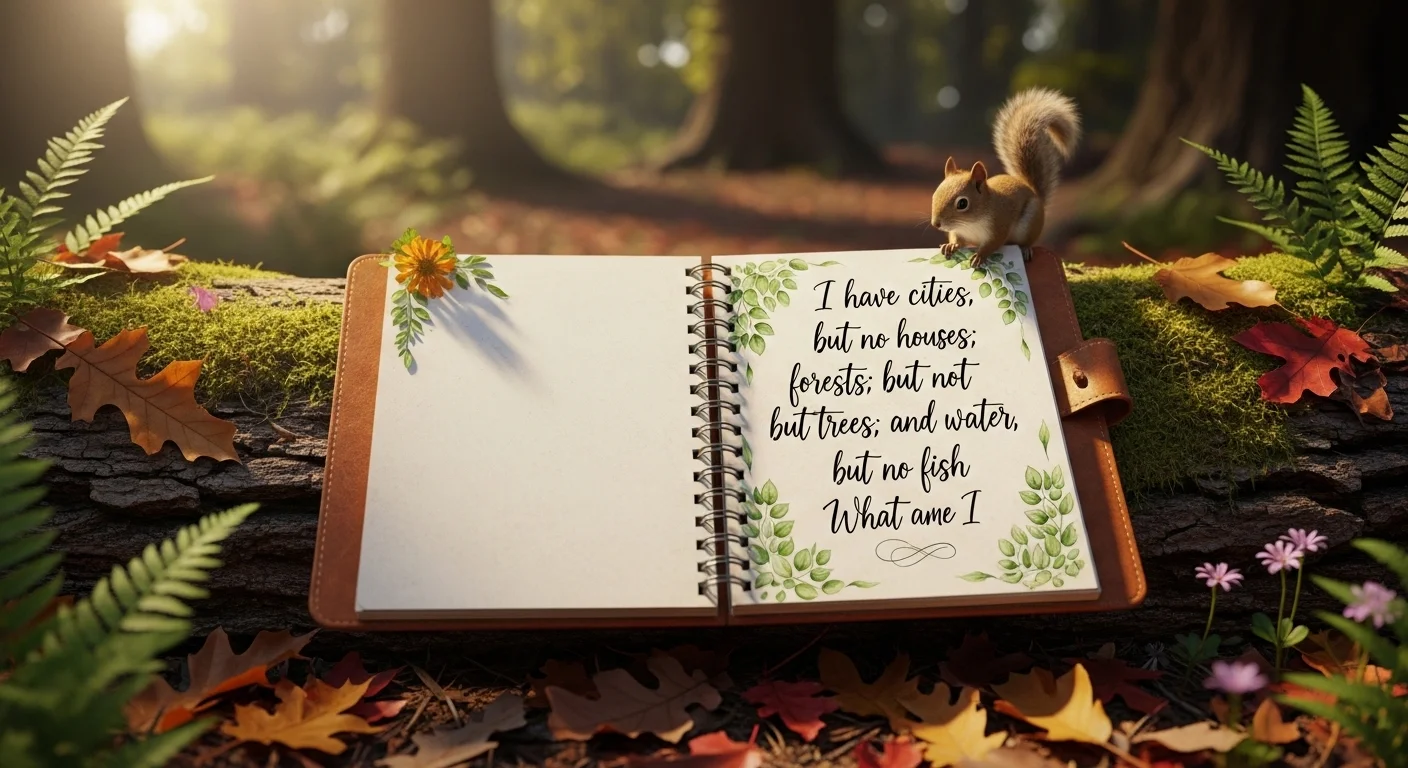 I have cities,
but no houses;
forests; but not
but trees; and water,
but no fish
What ame I